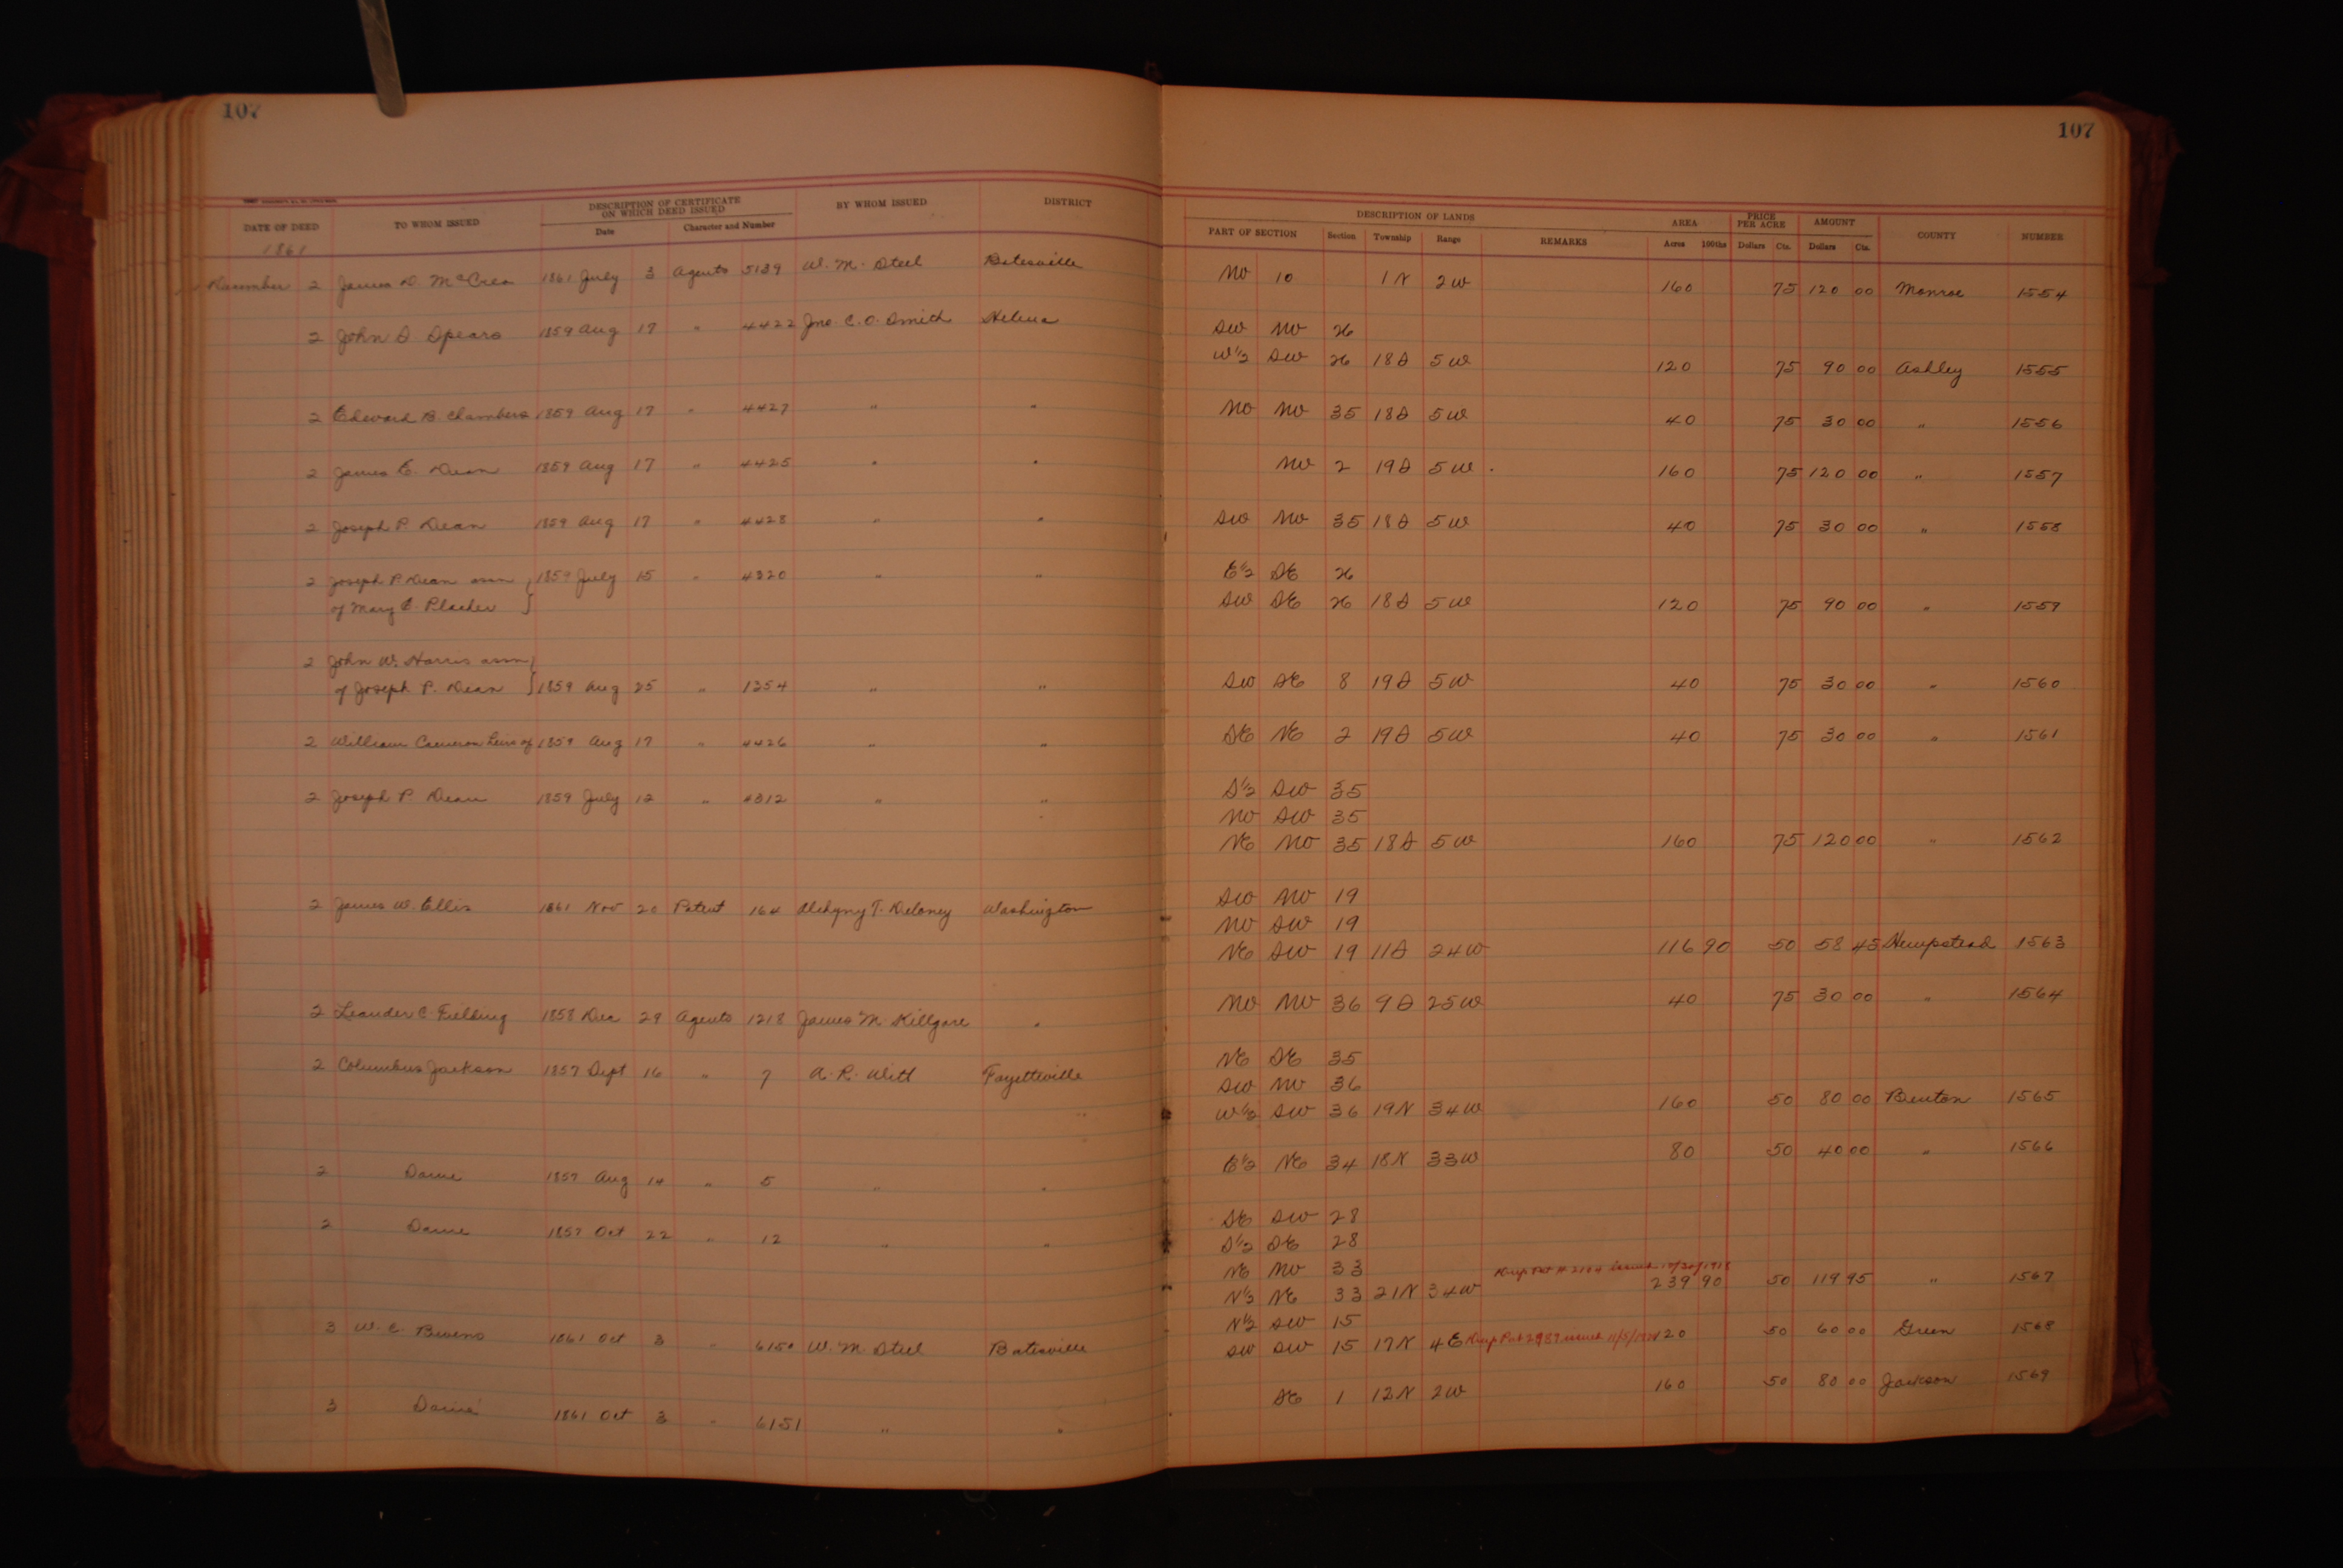 107
107
DATE OF DEED TO WHOM ISSUED DESCRIPTION OF CERTIFICATE ON WHICH DEED ISSUED Date Character and Number BY WHOM ISSUED DISTRICT
DESCRIPTION OF LANDS PART OF SECTION Section Township Range REMARKS AREA Acres 100ths PRICE PER ACRE Dollars Cts. AMOUNT Dollars Cts. COUNTY NUMBER
1861
December 2 James D. McCrea 1861 July 3 Agents 5139 W. M. Steel Batesville NW 10 1N 2W 160 75 120 00 Monroe 1554
2 John S Spears 1859 Aug 17 " 4422 Jno. C. O. Smith Helena SW NW 26
W½ SW 26 18S 5W 120 75 90 00 Ashley 1555
2 Edward B. Chambers 1859 Aug 17 " 4427 " " NW NW 35 18S 5W 40 75 30 00 " 1556
2 James E. Dean 1859 Aug 17 " 4425 " " NW 2 19S 5W 160 75 120 00 " 1557
2 Joseph P. Dean 1859 Aug 17 " 4428 " " SW NW 35 18S 5W 40 75 30 00 " 1558
2 Joseph P. Dean assn 1859 July 15 " 4320 " " E½ SE 26
of Mary E. SW SE 26 18S 5W 120 75 90 00 " 1559
2 John W. Harris assn
of Joseph P. Dean 1859 Aug 25 " 1354 " " SW SE 8 19S 5W 40 75 30 00 " 1560
2 William Cameron heirs of 1859 Aug 17 " 4426 " " SE NE 2 19S 5W 40 75 30 00 " 1561
2 Joseph P. Dean 1859 July 12 " 4312 " " S½ SW 35
NW SW 35
NE NW 35 18S 5W 160 75 120 00 " 1562
2 James W. Ellis 1861 Nov 20 Patent 164 T. Delaney Washington SW NW 19
NW SW 19
NE SW 19 11S 24W 116 90 50 58 45 Hempstead 1563
2 Leander C. Fielding 1858 Dec 29 Agents 1218 James M. Killgore " NW NW 36 9S 25W 40 75 30 00 " 1564
2 Columbus Jackson 1857 Sept 16 " 7 A. R. Witt Fayetteville NE SE 35
SW NW 36
W½ SW 36 19N 34W 160 50 80 00 Benton 1565
2 Same 1857 Aug 14 " 5 " " E½ NE 34 18N 33W 80 50 40 00 " 1566
2 Same 1857 Oct 22 " 12 " " SE SW 28
S½ SE 28
NE NW 33
N½ NE 33 21N 34W Dup Pat # issued 239 90 50 119 95 " 1567
3 W. C. Bivens 1861 Oct 3 " 6150 W. M. Steel Batesville N½ SW 15
SW SW 15 17N 4E Dup Pat issued 120 50 60 00 Green 1568
3 Same 1861 Oct 3 " 6151 " " SE 1 12N 2W 160 50 80 00 Jackson 1569